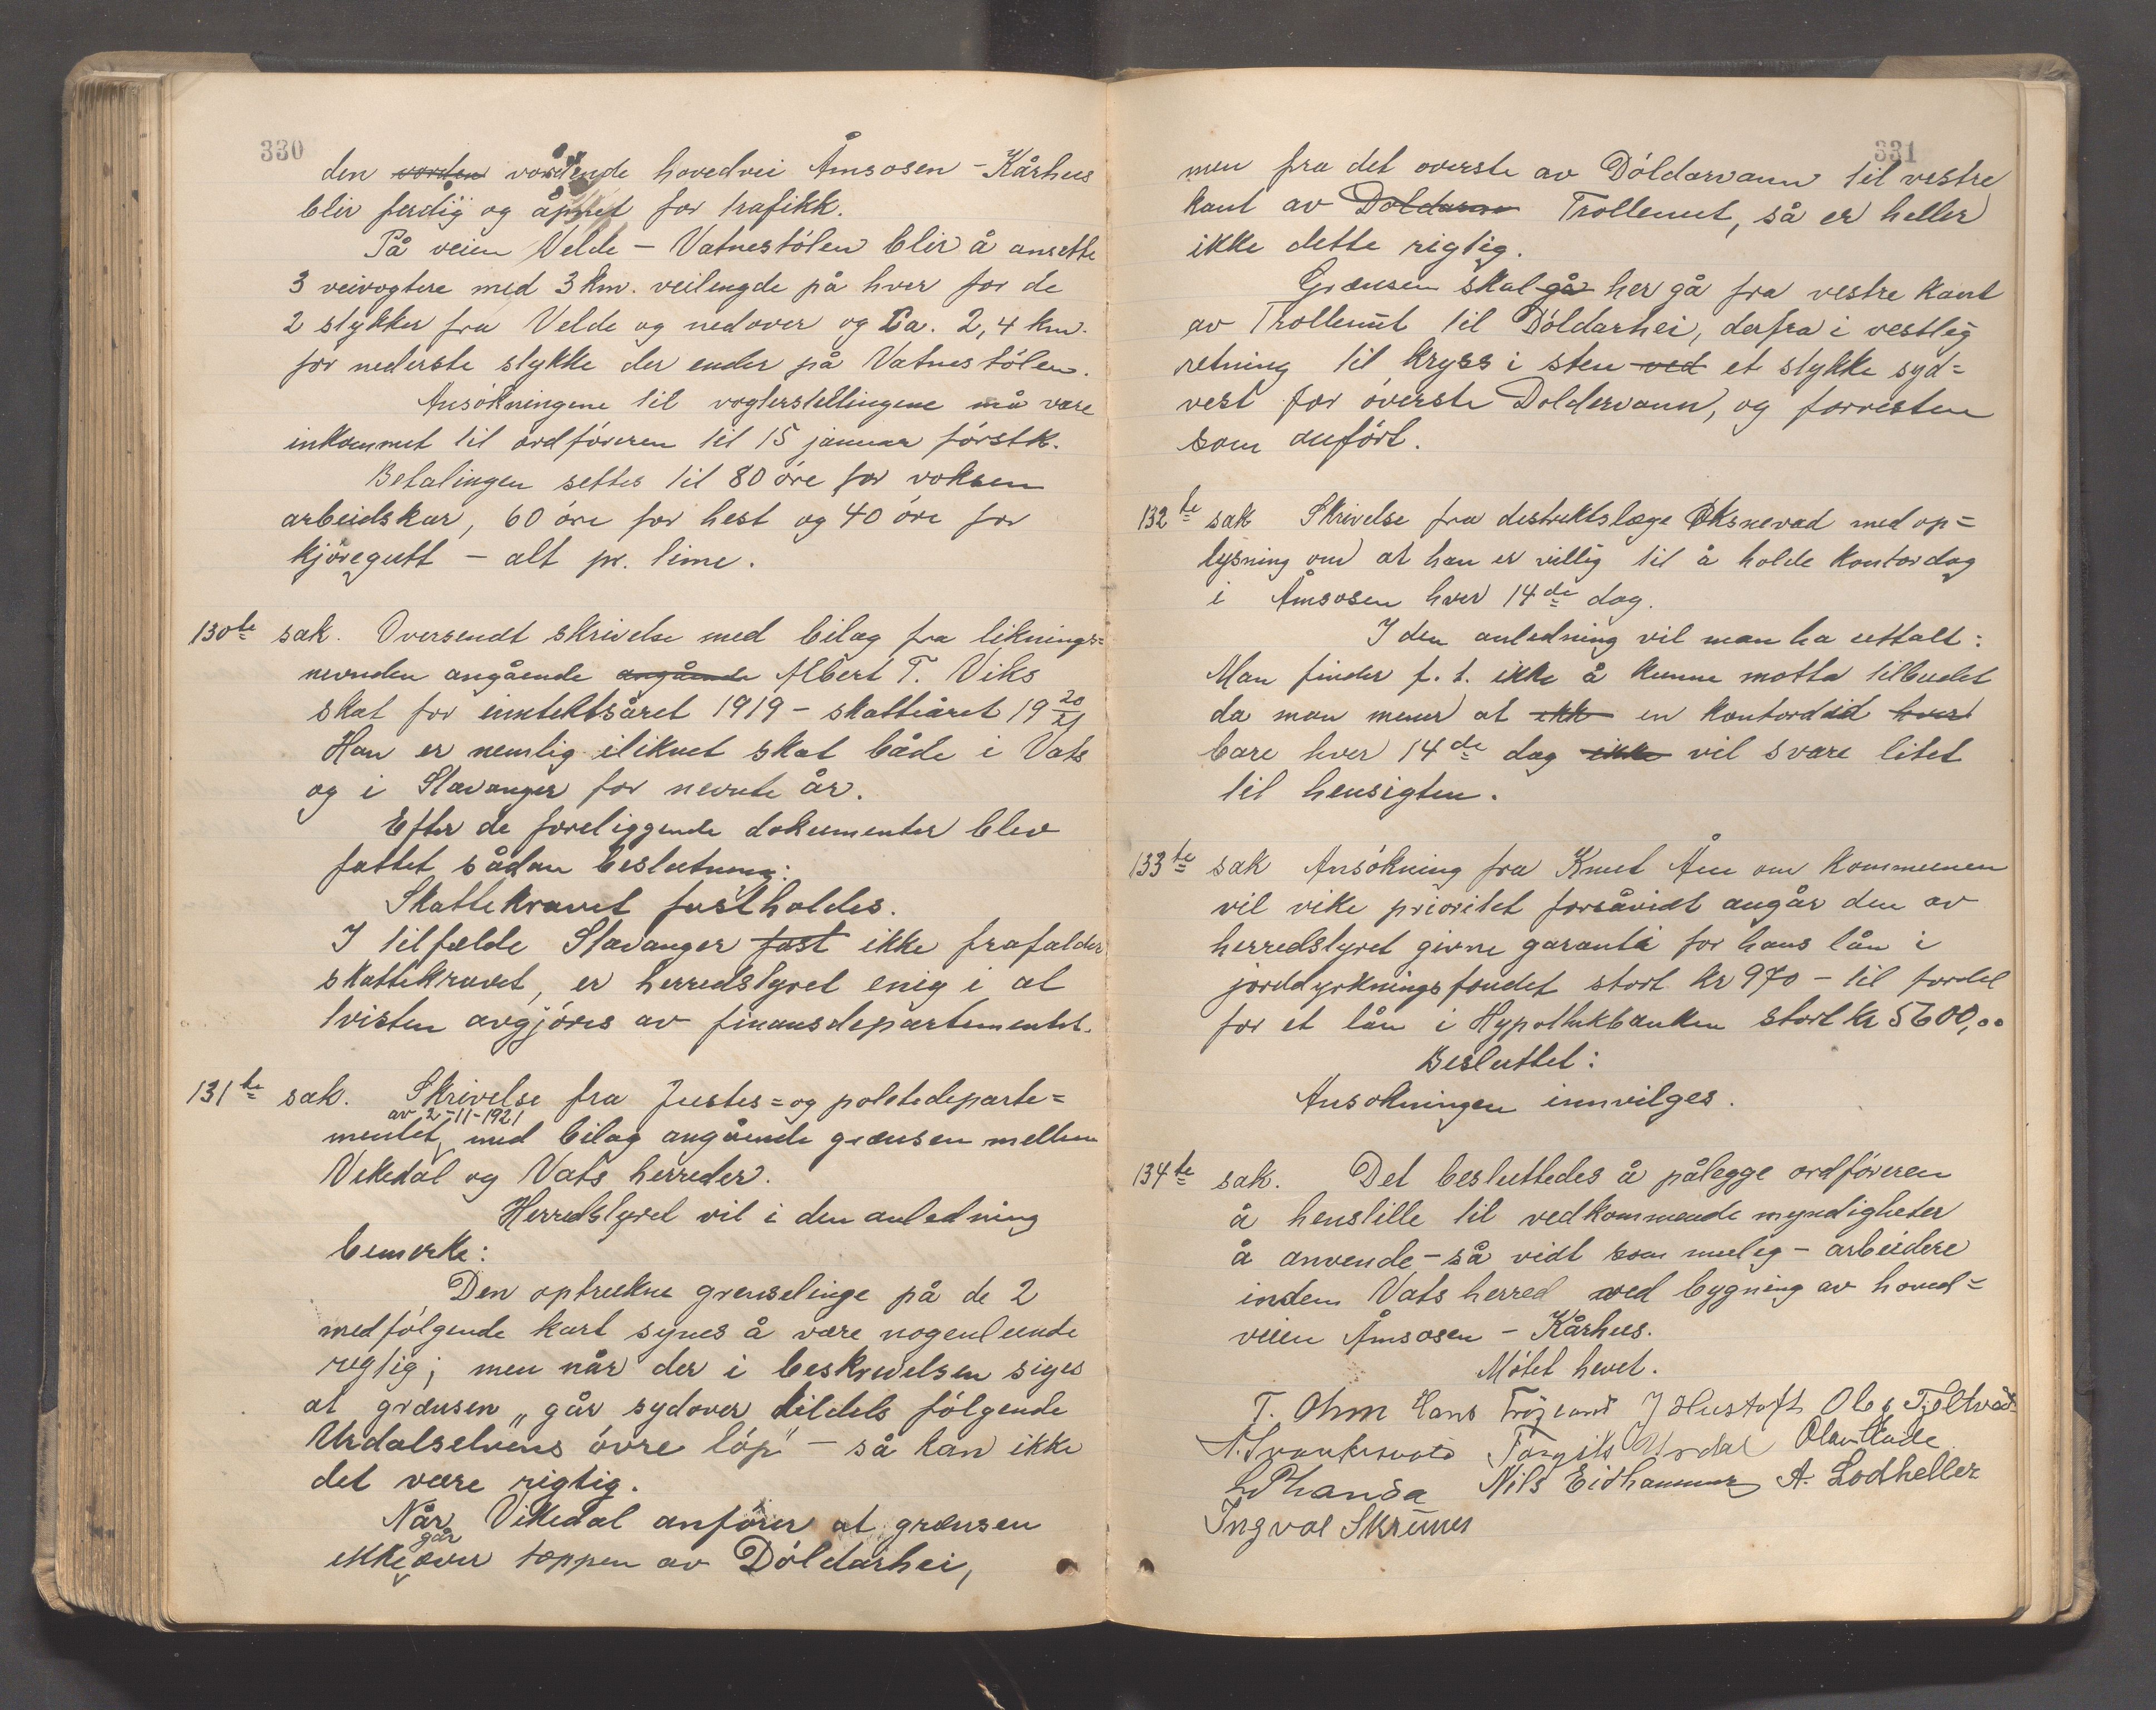 330
den vorden vordende hovedvei Åmsosen - Kårhus
blir ferdig og åpnet for trafikk.
På veien Velde - Vatnestölen blir å ansette
3 veivogtere med 3 km. veilengde på hver for de
2 stykker fra Velde og nedover og ca. 2,4 km.
for nederste stykke der ender på Vatnestölen.
Ansökningene til vogterstillingene må være
inkommet til ordföreren til 15 januar förstk.
Betalingen settes til 80 öre for voksen
arbeidskar, 60 öre for hest og 40 öre for
kjöregutt - alt pr. time.
130te sak. Oversendt skrivelse med bilag fra liknings=
nevnden angående angående Albert T. Viks
skat for inntektsåret 1919 - skatteåret 19 20/21
Han er nemlig iliknet skat både i Vats
og i Stavanger for nevnte år.
Efter de foreliggende dokumenter blev
fattet sådan beslutning:
Skattekravet fastholdes.
I tilfælde Stavanger fast ikke frafalder
skattekravet, er herredstyret enig i at
tvisten avgjöres av finansdepartementet.
131te sak. Skrivelse fra Justis= og politideparte=
mentet av 2-11-1921 med bilag angående grænsen mellem
Vikedal og Vats herreder.
Herredstyret vil i den anledning
bemerke:
Den optrukne grenselinje på de 2
medfölgende kart synes å være nogenlunde
rigtig; men når der i beskrivelsen siges
at grænsen „går sydover tildels fölgende
Urdalselvens övre löp" - så kan ikke
det være rigtig.
Når Vikedal anförer at grænsen
ikke går over toppen av Döldarhei,
331
men fra det överste av Döldarvann til vestre
kant av Doldarvn Trollenut, så er heller
ikke dette rigtig.
Grænsen skal gå her gå fra vestre kant
av Trollenut til Döldarhei, derfra i vestlig
retning til kryss i sten ved et stykke syd=
vest for överste Doldervann, og forresten
som anfört.
132te sak Skrivelse fra distriktslæge Öksnevad med op=
lysning om at han er villig til å holde kontordag
i Åmsosen hver 14de dag.
I den anledning vil man ha uttalt:
Man finder f. t. ikke å kunne motta tilbudet
da man mener at ikk en kontordid hver
bare hver 14de dag ikke vil svare litet
til hensigten.
133te sak Ansökning fra Knut Åm om kommunen
vil vike prioritet forsåvidt angår den av
herredstyret givne garanti for hans lån i
jorddyrkningsfondet stort kr 970 - til fordel
for et lån i Hypothekbanken stort kr 5600,00
Besluttet:
Ansökningen innvilges.
134te sak. Det besluttedes å pålegge ordföreren
å henstille til vedkommende myndigheter
å anvende - så vidt som mulig - arbeidere
inden Vats herred ved bygning av hoved=
veien Åmsosen - Kårhus.
Mötet hevet.
T. Ohm Hans Fröyland J Hustoft Ole G Fjeltvedt
Torgils Urdal
Nils Eidhammer A. Lodheller
Ingval Skrunes